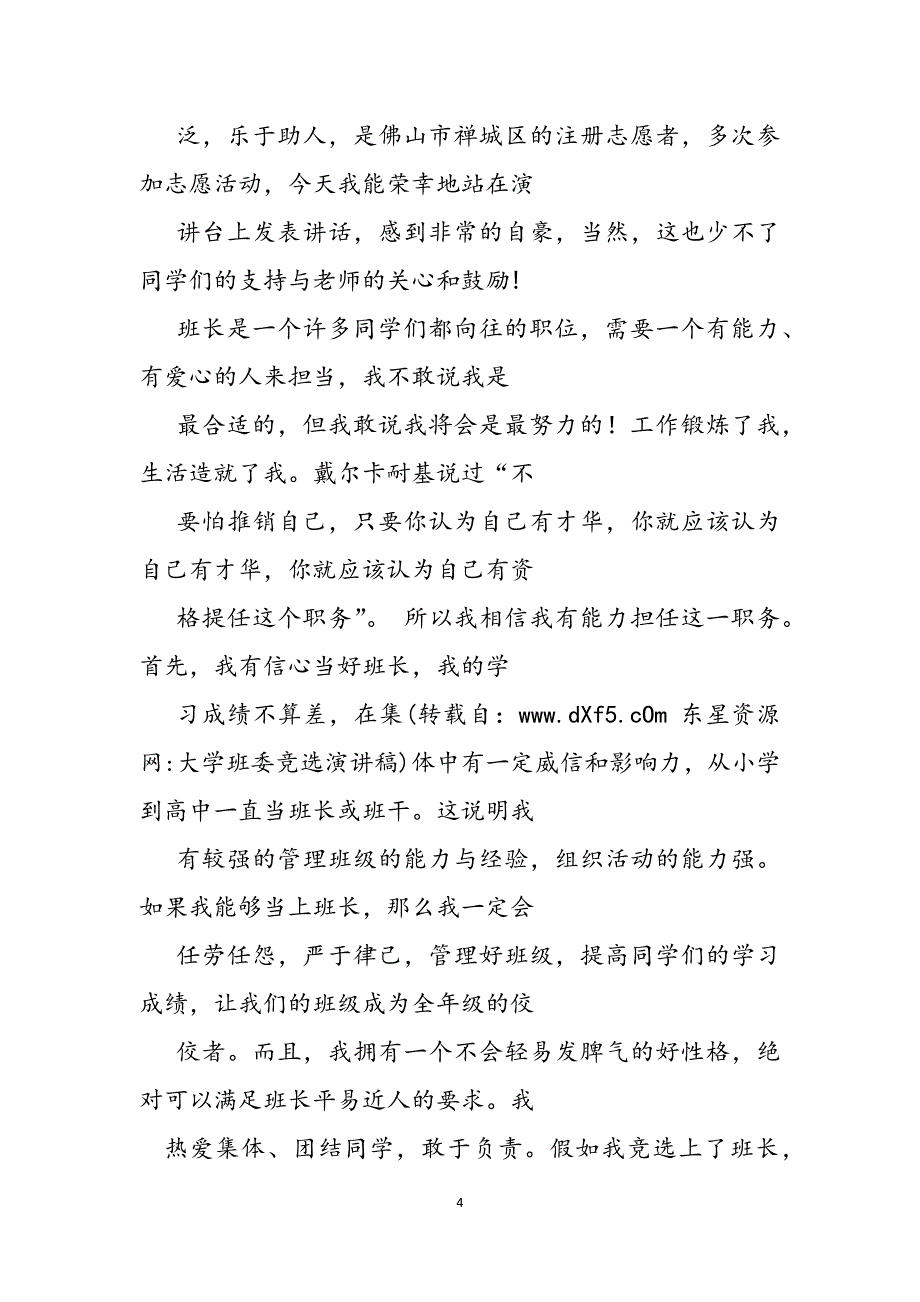 泛，乐于助人，是佛山市禅城区的注册志愿者，多次参
加志愿活动，今天我能荣幸地站在演
讲台上发表讲话，感到非常的自豪，当然，这也少不了
同学们的支持与老师的关心和鼓励!
班长是一个许多同学们都向往的职位，需要一个有能力、
有爱心的人来担当，我不敢说我是
最合适的，但我敢说我将会是最努力的! 工作锻炼了我，
生活造就了我。戴尔卡耐基说过“不
要怕推销自己，只要你认为自己有才华，你就应该认为
自己有才华，你就应该认为自己有资
格提任这个职务”。 所以我相信我有能力担任这一职务。
首先，我有信心当好班长，我的学
习成绩不算差，在集(转载自: www.dXf5.cOm 东星资源
网:大学班委竞选演讲稿)体中有一定威信和影响力，从小学
到高中一直当班长或班干。这说明我
有较强的管理班级的能力与经验，组织活动的能力强。
如果我能够当上班长，那么我一定会
任劳任怨，严于律己，管理好班级，提高同学们的学习
成绩，让我们的班级成为全年级的佼
佼者。而且，我拥有一个不会轻易发脾气的好性格，绝
对可以满足班长平易近人的要求。我
热爱集体、团结同学，敢于负责。假如我竞选上了班长，
4